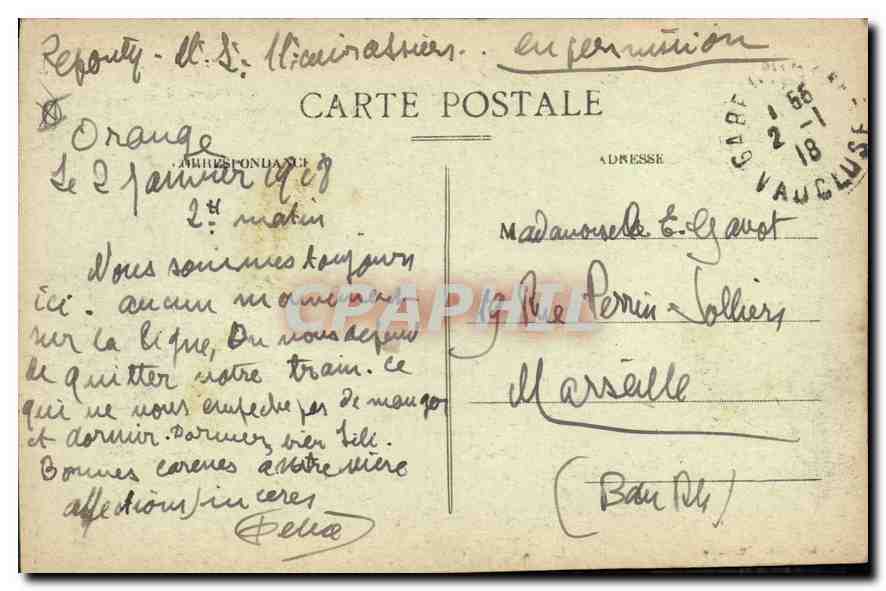 en permission
CARTE POSTALE
Orange
CORRESPONDANCE
ADRESSE
Le 2 Janvier 1918
2H matin
GARE
1 55
2 - 1
18
VAUCLUSE
Nous sommes toujours
ici. aucun mouvement
sur la ligne, On nous defend
de quitter notre train. Ce
qui ne nous empeche pas de manger
et dormir. Dormez bien Lili.
Bonnes caresses à votre mère
affections sinceres
Mademoiselle E. Gavot
19 Rue Perrin-Solliers
Marseille
(Bdu Rh)
CPAPHIL